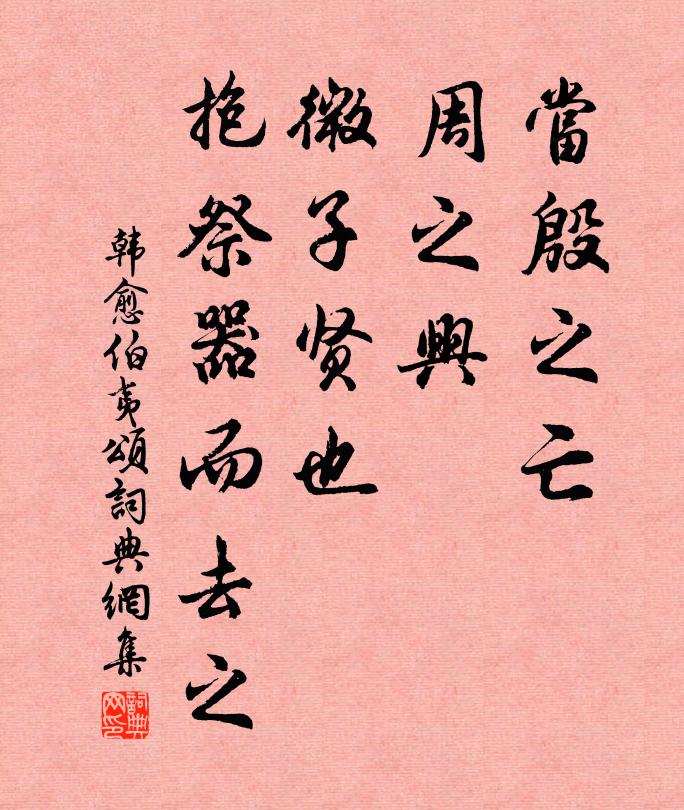 當殷之亡
周之興
微子贤也
抱祭器而去之
韩愈伯夷頌詞典網集
詞典
网印